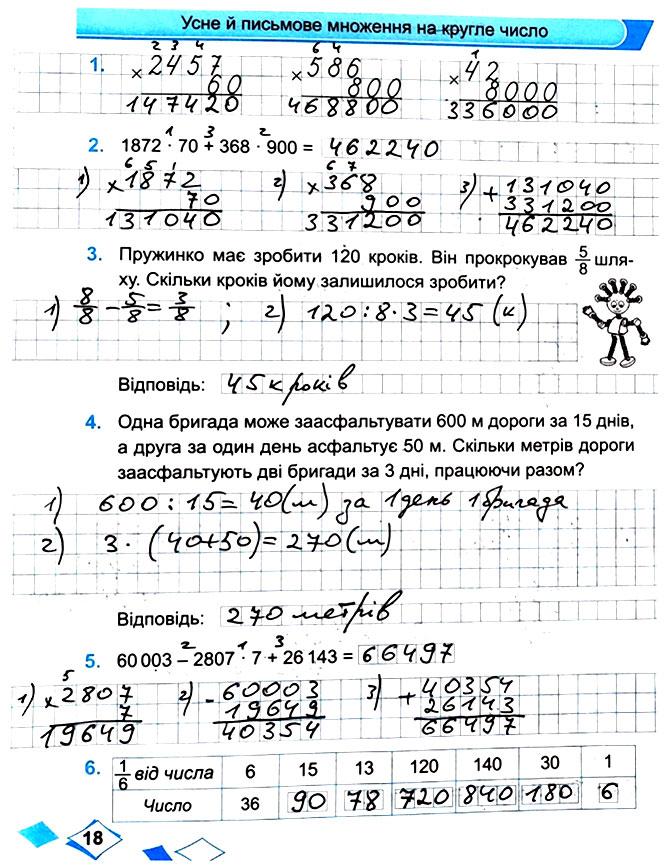 Усне й письмове множення на кругле число
2 3 4 6 4 1
1. × 2457 × 586 × 42
60 800 8000
147420 468800 336000
1 3 2
2. 1872 · 70 + 368 · 900 = 462240
6 5 1 6 7
1) × 1872 2) × 368 3) + 131040
70 900 331200
131040 331200 462240
3. Пружинко має зробити 120 кроків. Він прокрокував 5/8 шля-
ху. Скільки кроків йому залишилося зробити?
1) 8/8 − 5/8 = 3/8 ; 2) 120 : 8 · 3 = 45 (к)
Відповідь: 45 кроків
4. Одна бригада може заасфальтувати 600 м дороги за 15 днів,
а друга за один день асфальтує 50 м. Скільки метрів дороги
заасфальтують дві бригади за 3 дні, працюючи разом?
1) 600 : 15 = 40 (м) за 1 день 1 бригада
2) 3 · (40+50) = 270 (м)
Відповідь: 270 метрів
2 1 3
5. 60 003 − 2807 · 7 + 26 143 = 66497
5
1) × 2807 2) − 60003 3) + 40354
7 19649 26143
19649 40354 66497
6. 1/6 від числа 6 15 13 120 140 30 1
Число 36 90 78 720 840 180 6
18